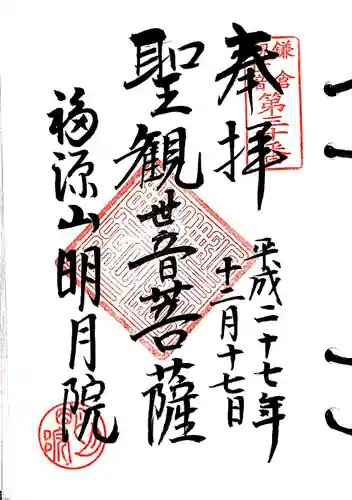 奉拝
鎌倉
第三十番
平成二十七年
十二月十七日
聖観世音菩薩
福源山明月院